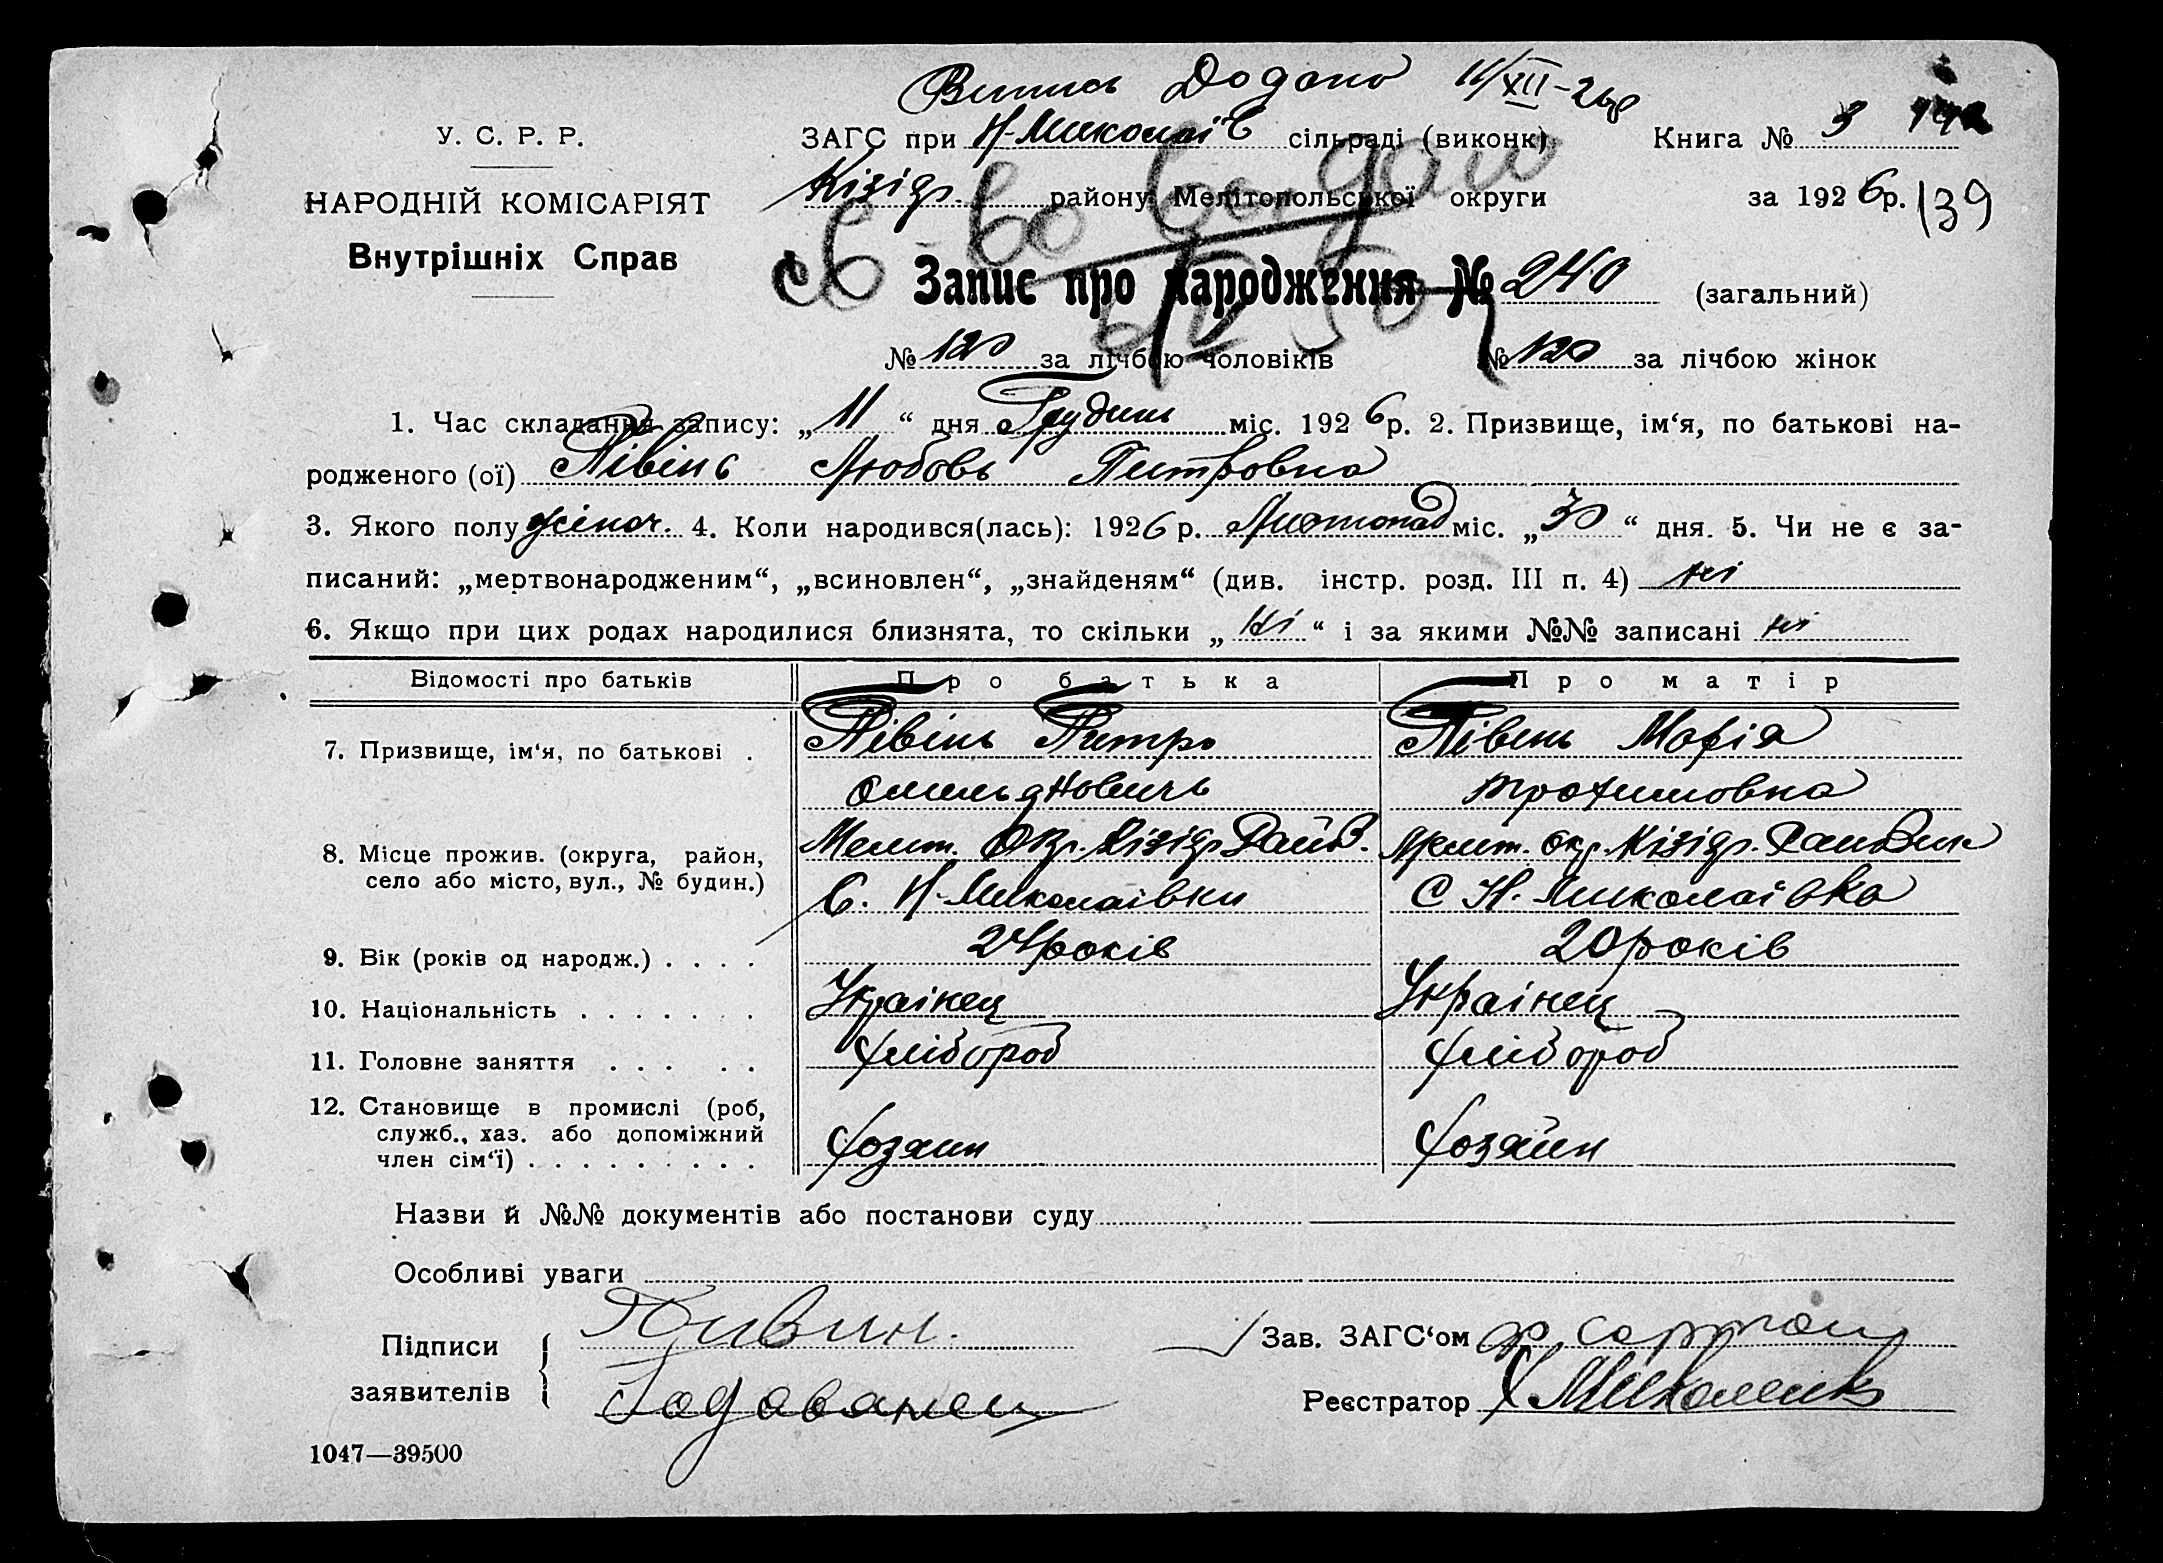 Випись Додано 11/XII-26р
У. С. Р. Р.
ЗАГС при Н-Миколаїв сільраді (виконк) Книга № 3
НАРОДНІЙ КОМІСАРІЯТ
Кізіяр. району Мелітопольської округи за 1926р. 139
Внутрішніх Справ
Св-во
Запис про народження № 240 (загальний)
№ 120 за лічбою чоловіків № 120 за лічбою жінок
1. Час складання запису: „11“ дня Грудень міс. 1926р. 2. Призвище, ім‘я, по батькові на-
родженого (ої) Півінь Любовь Питровна
3. Якого полу жіноч. 4. Коли народився(лась): 1926 р. Листопад міс. „30“ дня. 5. Чи не є за-
писаний: „мертвонародженим“, „всиновлен“, „знайденям“ (див. інстр. розд. III п. 4) ні
6. Якщо при цих родах народилися близнята, то скільки „ні“ і за якими №№ записані ні
Відомості про батьків Про батька Про матір
7. Призвище, ім‘я, по батькові . Півінь Питро Півень Марія
Омельяновичь Трохимовна
8. Місце прожив. (округа, район, Мелит. Окр. Кізіяр Район. Мелит. окр. Кізіяр.
село або місто, вул., № будин.) С. Н-Миколаівки С Н. Миколаівка
9. Вік (років од народж.) . . . . 24років 20років
10. Національність . . . . . . . Украінец Украінец
11. Головне заняття . . . . . хлібороб хлібороб
12. Становище в промислі (роб,
служб., хаз. або допоміжний
член сім‘ї) . . . . . . . . . хозяин хозяйин
Назви й №№ документів або постанови суду
Особливі уваги
Підписи Пивин. Зав. ЗАГС‘ом
заявителів Реєстратор
1047—39500